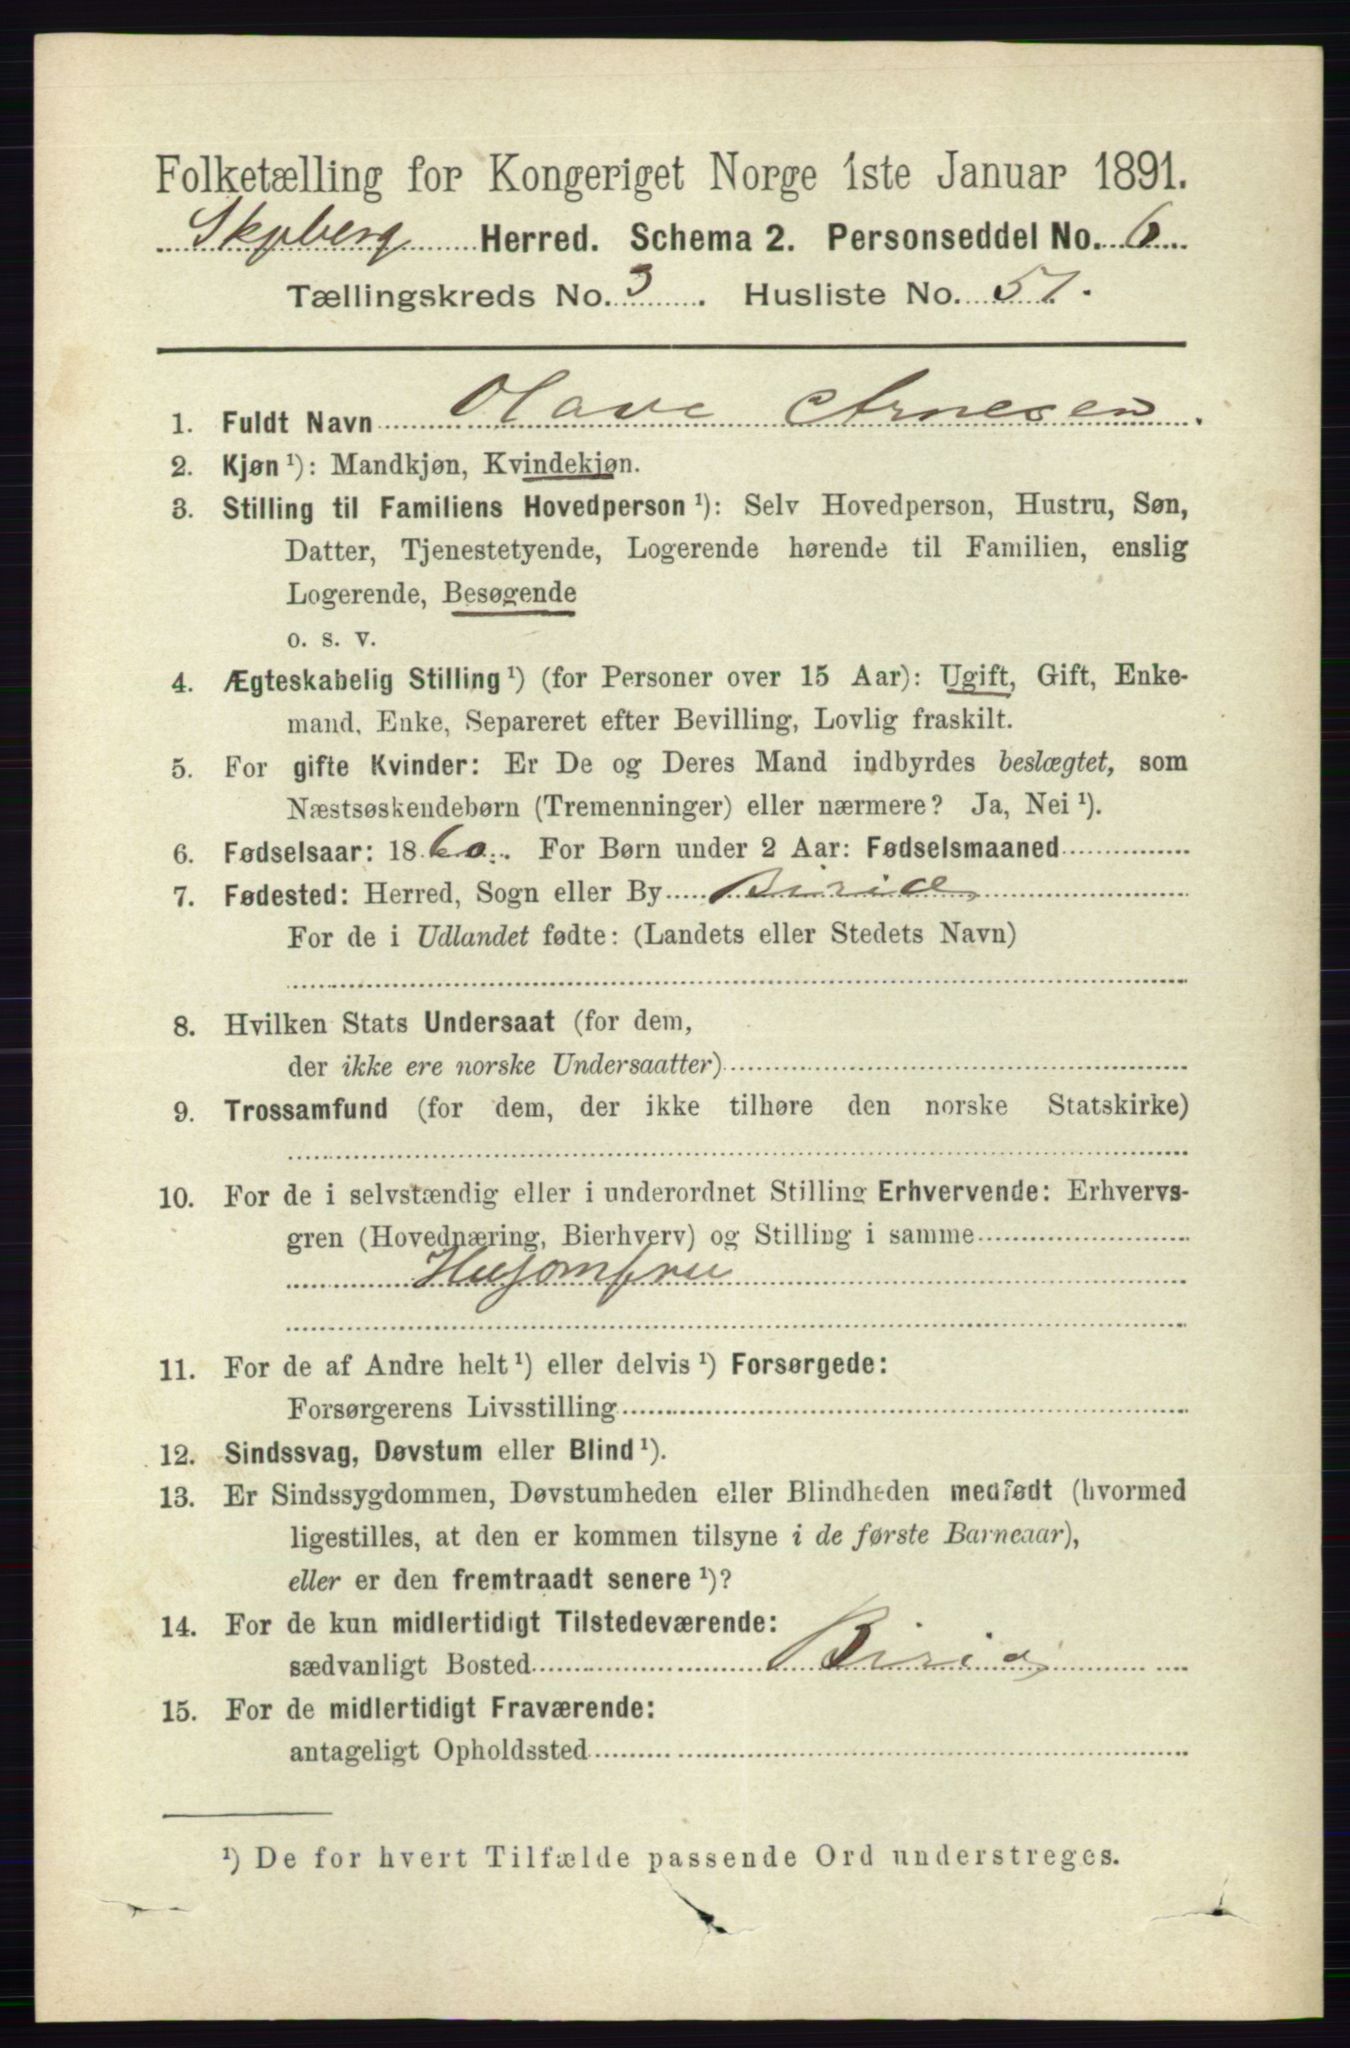 Folketælling for Kongeriget Norge 1ste Januar 1891.
Skjeberg Herred. Schema 2. Personseddel No. 6
Tællingskreds No. 3. Husliste No. 51.
1. Fuldt Navn Olava Arnesen.
2. Kjøn ¹): Mandkjøn, Kvindekjøn.
3. Stilling til Familiens Hovedperson ¹): Selv Hovedperson, Hustru, Søn,
Datter, Tjenestetyende, Logerende hørende til Familien, enslig
Logerende, Besøgende
o. s. v.
4. Ægteskabelig Stilling ¹) (for Personer over 15 Aar): Ugift, Gift, Enke-
mand, Enke, Separeret efter Bevilling, Lovlig fraskilt.
5. For gifte Kvinder: Er De og Deres Mand indbyrdes beslægtet, som
Næstsøskendebørn (Tremenninger) eller nærmere? Ja, Nei ¹).
6. Fødselsaar: 1860. For Børn under 2 Aar: Fødselsmaaned
7. Fødested: Herred, Sogn eller By Birid
For de i Udlandet fødte: (Landets eller Stedets Navn)
8. Hvilken Stats Undersaat (for dem,
der ikke ere norske Undersaatter)
9. Trossamfund (for dem, der ikke tilhøre den norske Statskirke)
10. For de i selvstændig eller i underordnet Stilling Erhvervende: Erhvervs-
gren (Hovednæring, Bierhverv) og Stilling i samme
Husjomfru
11. For de af Andre helt ¹) eller delvis ¹) Forsørgede:
Forsørgerens Livsstilling
12. Sindssvag, Døvstum eller Blind ¹).
13. Er Sindssygdommen, Døvstumheden eller Blindheden medfødt (hvormed
ligestilles, at den er kommen tilsyne i de første Barneaar),
eller er den fremtraadt senere ¹)?
14. For de kun midlertidigt Tilstedeværende:
sædvanligt Bosted Birid
15. For de midlertidigt Fraværende:
antageligt Opholdssted
¹) De for hvert Tilfælde passende Ord understreges.